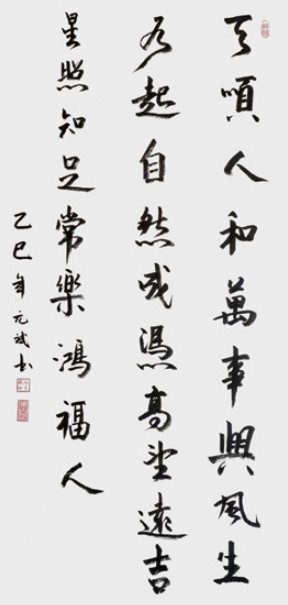 天順人和萬事興風生
水起自然成馮高望遠吉
星照知足常樂鴻福人
乙巳年元斌书